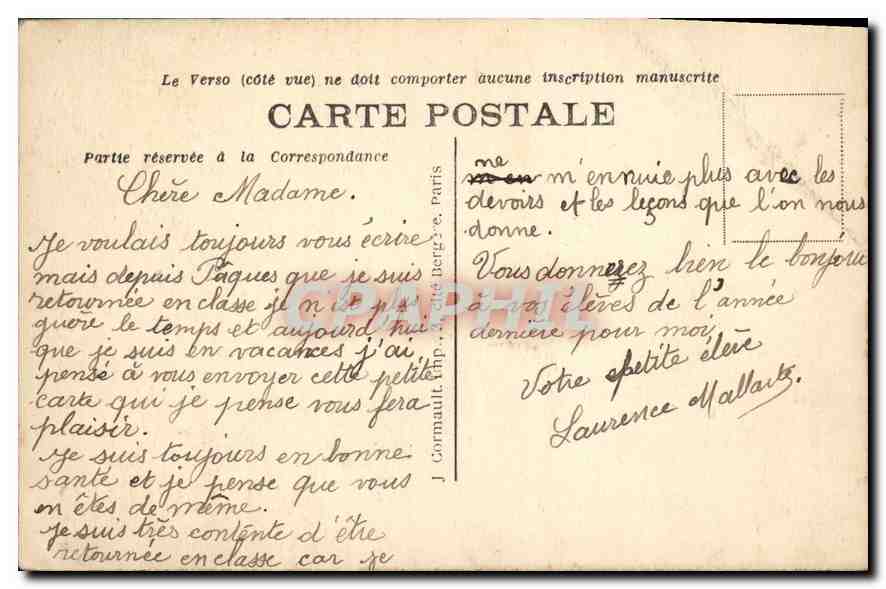 Le Verso (côté vue) ne doit comporter aucune inscription manuscrite
CARTE POSTALE
Partie réservée à la Correspondance
Chère Madame.
Je voulais toujours vous écrire
mais depuis Pâques que je suis
retournée en classe je n'est plus
guère le temps et aujourd'hui
que je suis en vacances j'ai
pensé à vous envoyer cette petite
carte qui je pense vous fera
plaisir.
Je suis toujours en bonne
santé et je pense que vous
en êtes de même.
je suis très contente d'être
retournée en classe car je
ne
m'ennuie plus avec les
devoirs et les leçons que l'on nous
donne.
Vous donnerez bien le bonjour
à vos élèves de l'année
dernière pour moi
Votre petite élève
Laurence
J Cormault, Imp., cité Bergère, Paris
CPAPHIL